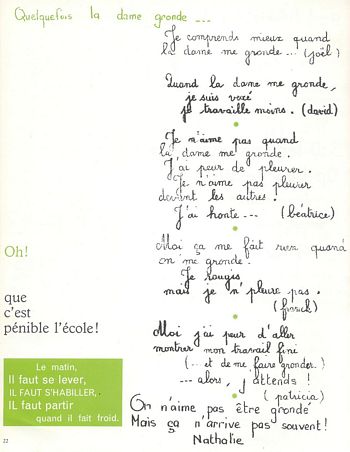 Quelquefois la dame gronde ...
Je comprends mieux quand
la dame me gronde ... (joël)
Quand la dame me gronde,
je suis vexé
je travaille moins. (david)
Je n'aime pas quand
la dame me gronde.
J'ai peur de pleurer.
Je n'aime pas pleurer
devant les autres.
J'ai honte ... (béatrice)
Moi ça me fait rien quand
on me gronde.
Je rougis
mais je n'pleure pas.
(franck)
Moi j'ai peur d'aller
montrer mon travail fini
(... et de me faire gronder.)
... alors, j'attends !
(patricia)
On n'aime pas être grondé
Mais ça n'arrive pas souvent!
Nathalie
Oh!
que
c'est
pénible l'école!
Le matin,
Il faut se lever,
IL FAUT S'HABILLER,
IL faut partir
quand il fait froid.
22